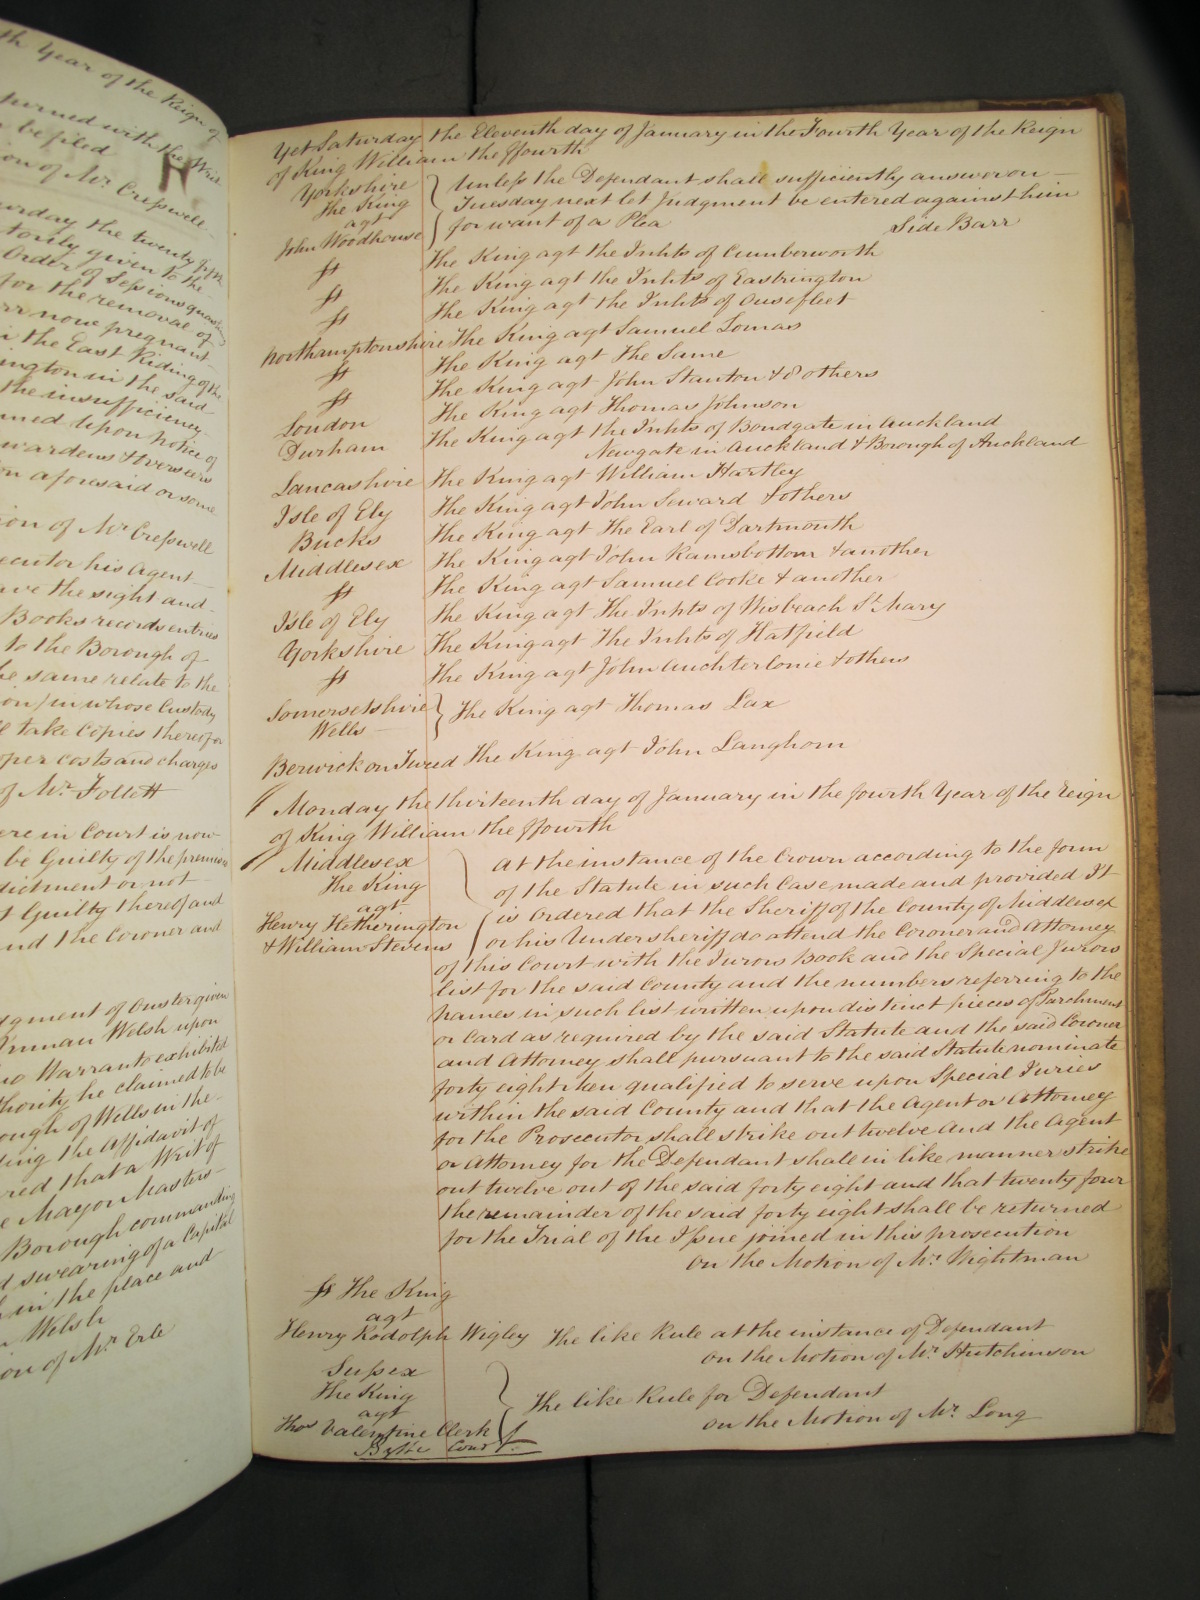 th Year of the Reign of
turned with the Writ
be filed
ion of Mr. Cresswell
urday the twenty fifth
given to the
Order of Sessions
for the removal of
now pregnant
the East Riding of the
ington in the said
the insufficiency
upon Notice of
wardens & Overseers
aforesaid or some
ion of Mr. Cresswell
ecutor his Agent
ave the sight and
Books records entries
to the Borough of
he same relate to the
in whose Custody
take Copies thereof
oper costs and charges
of Mr. Follett
ere in Court is now
be Guilty of the premises
dictment or not
t Guilty thereof and
and the Coroner and
dgment of Ouster given
Inman Welsh upon
uo Warranto exhibited
thority he claimed to be
ough of Wells in the
ding the Affidavit of
red that a Writ of
e Mayor Masters
Borough commanding
d swearing of a Capital
in the place and
Welsh
ion of Mr. Erle
Yet Saturday the Eleventh day of January in the Fourth Year of the Reign
of King William the ffourth
Yorkshire
The King
agt
John Woodhouse
Unless the Defendant shall sufficiently answer on
Tuesday next let Judgment be entered against him
for want of a Plea Side Barr
ss The King agt the Inhts of Cumberworth
ss The King agt the Inhts of Eastrington
ss The King agt the Inhts of Ousefleet
Northamptonshire The King agt Samuel Lomas
ss The King agt The Same
ss The King agt John Stanton & 8 others
London The King agt Thomas Johnson
Durham The King agt the Inhts of Bondgate in Auckland
Newgate in Auckland & Borough of Auckland
Lancashire The King agt William Hartley
Isle of Ely The King agt John Seward & others
Bucks The King agt The Earl of Dartmouth
Middlesex The King agt John Ramsbottom & another
ss The King agt Samuel Cooke & another
Isle of Ely The King agt The Inhts of Wisbeach St. Mary
Yorkshire The King agt The Inhts of Hatfield
ss The King agt John Auchterlonie & others
Somersetshire
Wells
The King agt Thomas Lax
Berwick on Tweed The King agt John Langhorn
Monday the thirteenth day of January in the fourth Year of the Reign
of King William the ffourth
Middlesex
The King
agt
Henry Hetherington
& William Stevens
At the instance of the Crown according to the form
of the Statute in such Case made and provided It
is Ordered that the Sheriff of the County of Middlesex
or his Undersheriff do attend the Coroner and Attorney
of this Court with the Jurors Book and the Special Jurors
list for the said County and the numbers referring to the
names in such list written upon distinct pieces of Parchment
or Card as required by the said Statute and the said Coroner
and Attorney shall pursuant to the said Statute nominate
forty eight Men qualified to serve upon Special Juries
within the said County and that the Agent or Attorney
for the Prosecutor shall strike out twelve and the Agent
or Attorney for the Defendant shall in like manner strike
out twelve out of the said forty eight and that twenty four
the remainder of the said forty eight shall be returned
for the Trial of the Issue joined in this prosecution
on the Motion of Mr. Wightman
ss The King
agt
Henry Rodolph Wigley The like Rule at the instance of Defendant
on the Motion of Mr. Hutchinson
Sussex
The King
agt
Thos Valentine Clerk
The like Rule for Defendant
on the Motion of Mr. Long
By the Court.